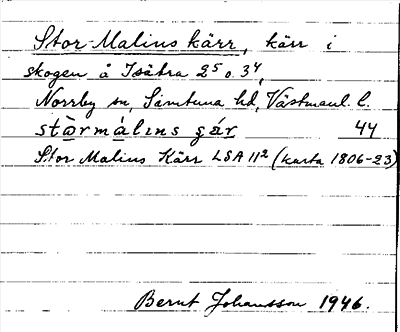 Stor-Malins kärr, kärr i
skogen å Isätra 2⁵ o. 3⁴,
Norrby sn, Simtuna hd, Västmanl. l.
stòrmálins çár 44
Stor Malins Kärr LSA 11² (karta 1806-23)
Bernt Johansson 1946.